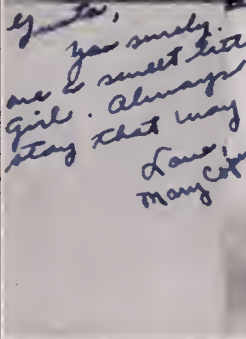 You surely
are a sweet litt
girl. Always
stay that way
Love,
Mary